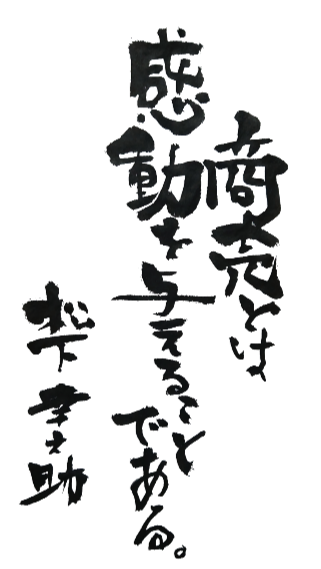 商売とは
感動を与えること
である。
松下幸之助